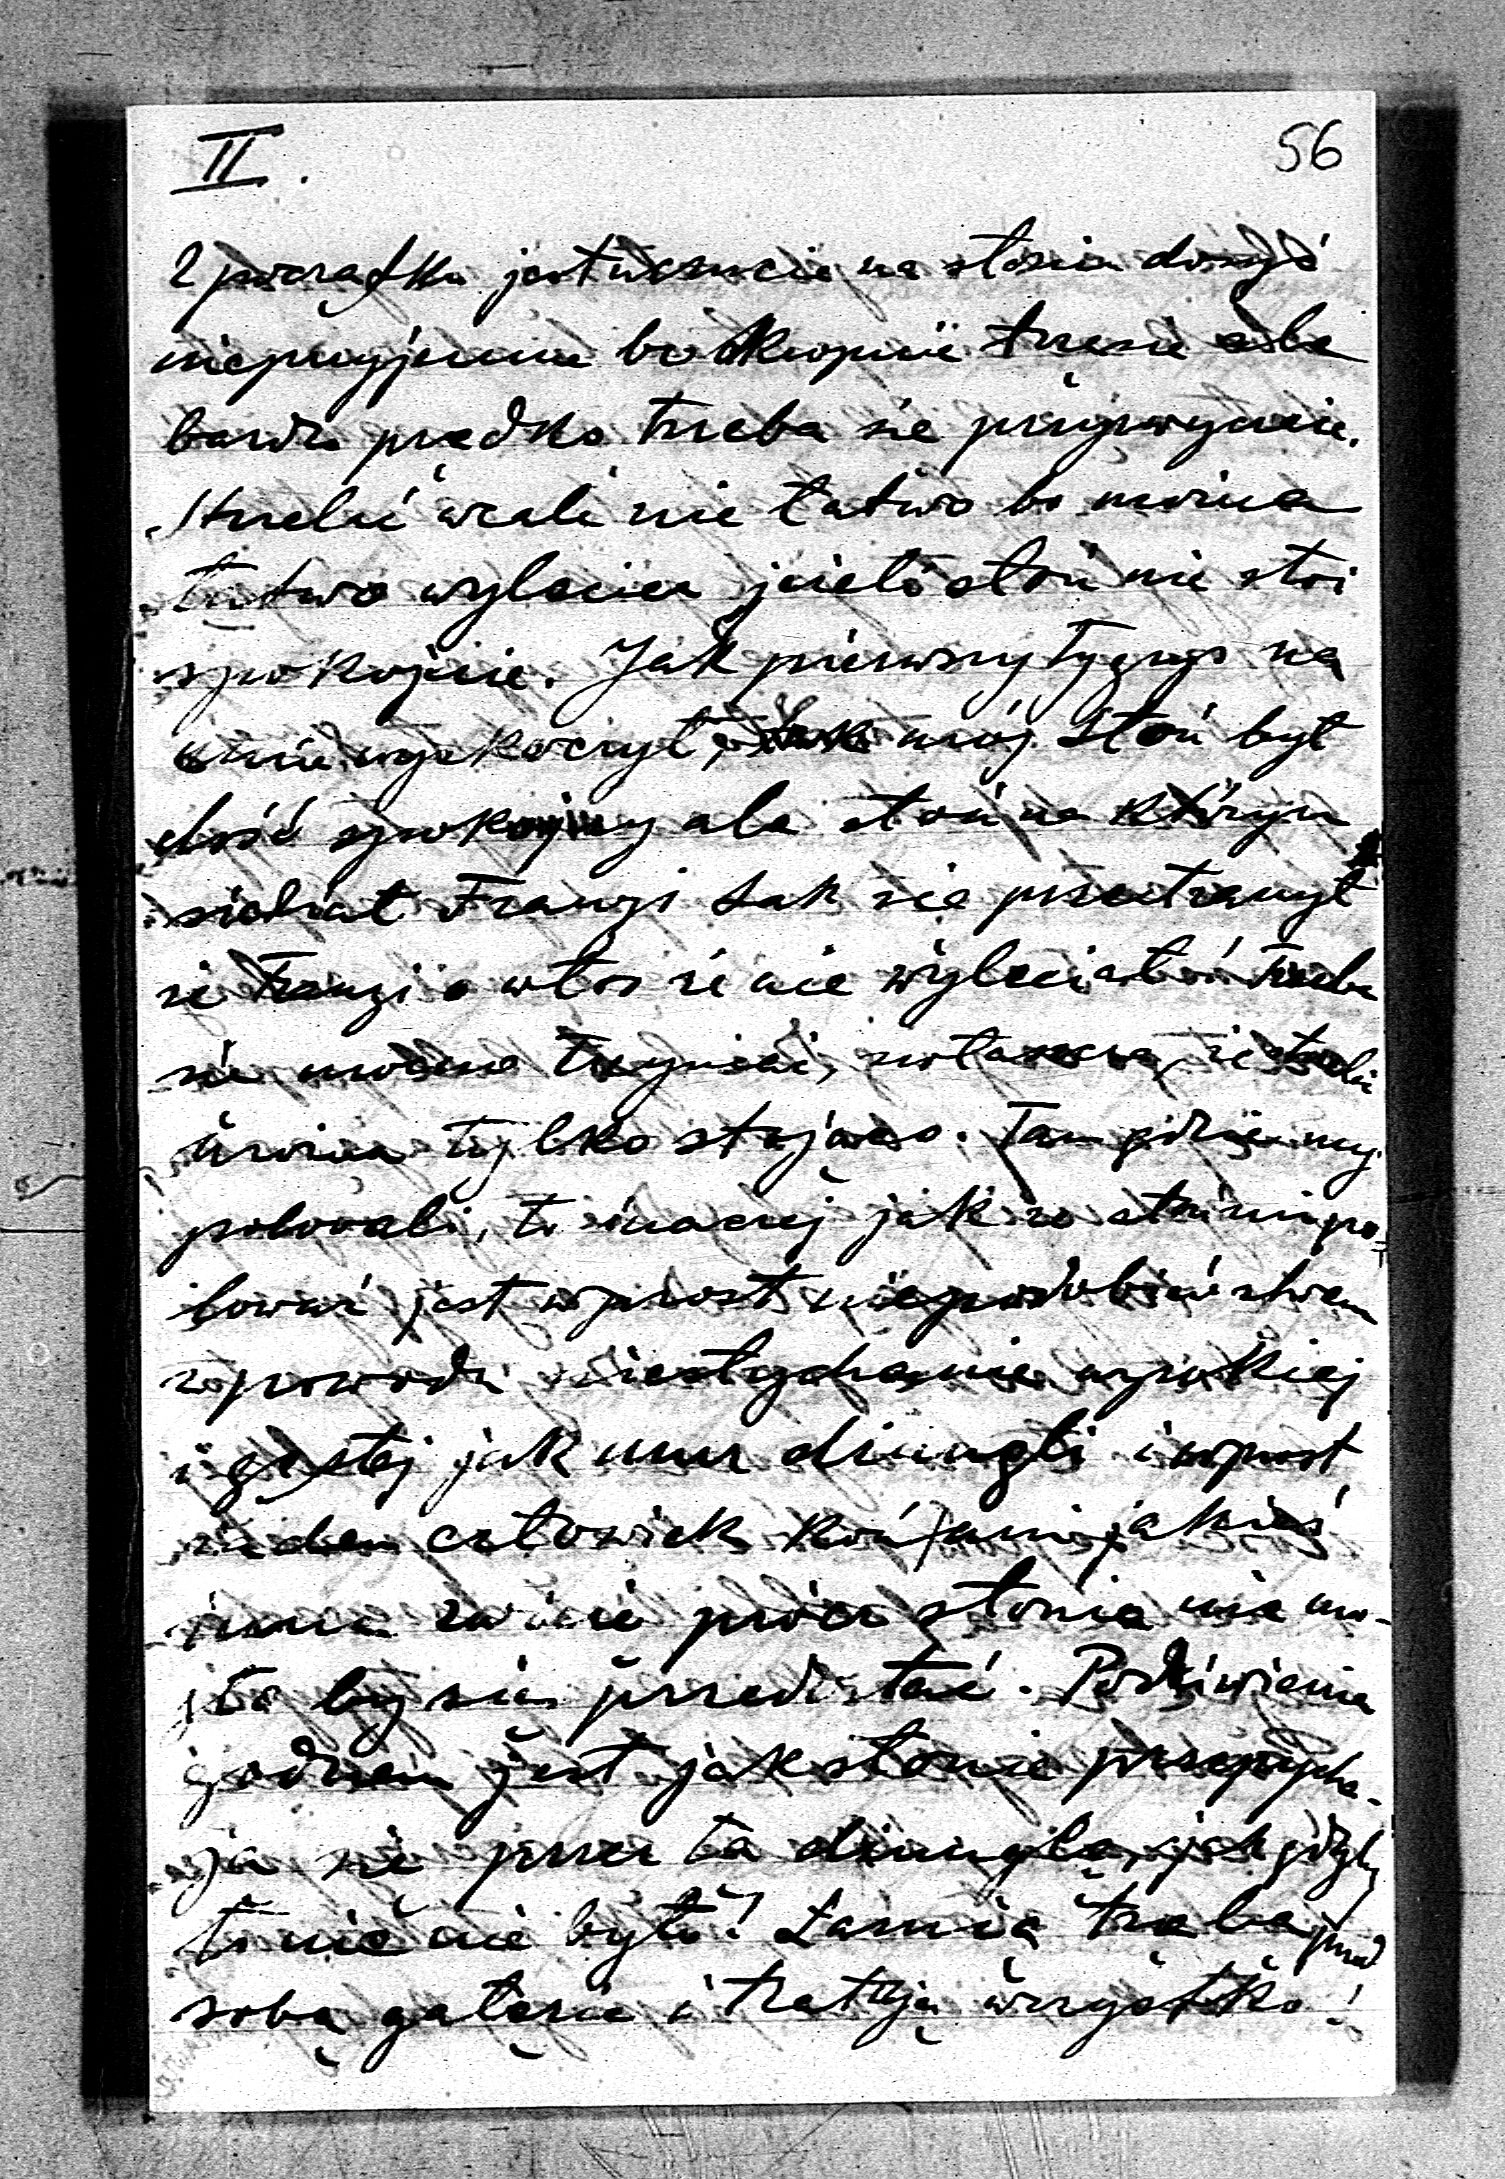 II. 56
z początku jest uczucie na słoniu dosyć
nieprzyjemne bo okropnie trzesie ale
bardzo prędko trzeba się przyzwyczaic.
Strzelać wcale nie łatwo bo można
łatwo wylecieć jeżeli słoń nie stoi
spokojnie. Jak pierwszy tygrys na
mnie wyskoczył, mój słoń był
dość spokojny ale słoń na którym
siedział Franzi tak się
że Franzi o włos że nie wyleciał i trzeba
się mocno trzymać, zwłaszcza, że strzelać
można tylko stojąco. Tam gdzie my
polowali, to inaczej jak ze słoniem po=
lować jest wprost niepodobieństwem
z powodu niesłychanie wysokiej
i gęstej jak mur dżungli i wprost
żaden człowiek koń ani jakieś
inne zwierze prócz słonia nie mo-
gło by się przedostać. Podziwienia
godnem jest jak słonie przepycha-
ją się przez tą dżunglę, jak gdyby
to nic nie było! Łamią trąbą przed
sobą gałęzie i tratują wszystko!